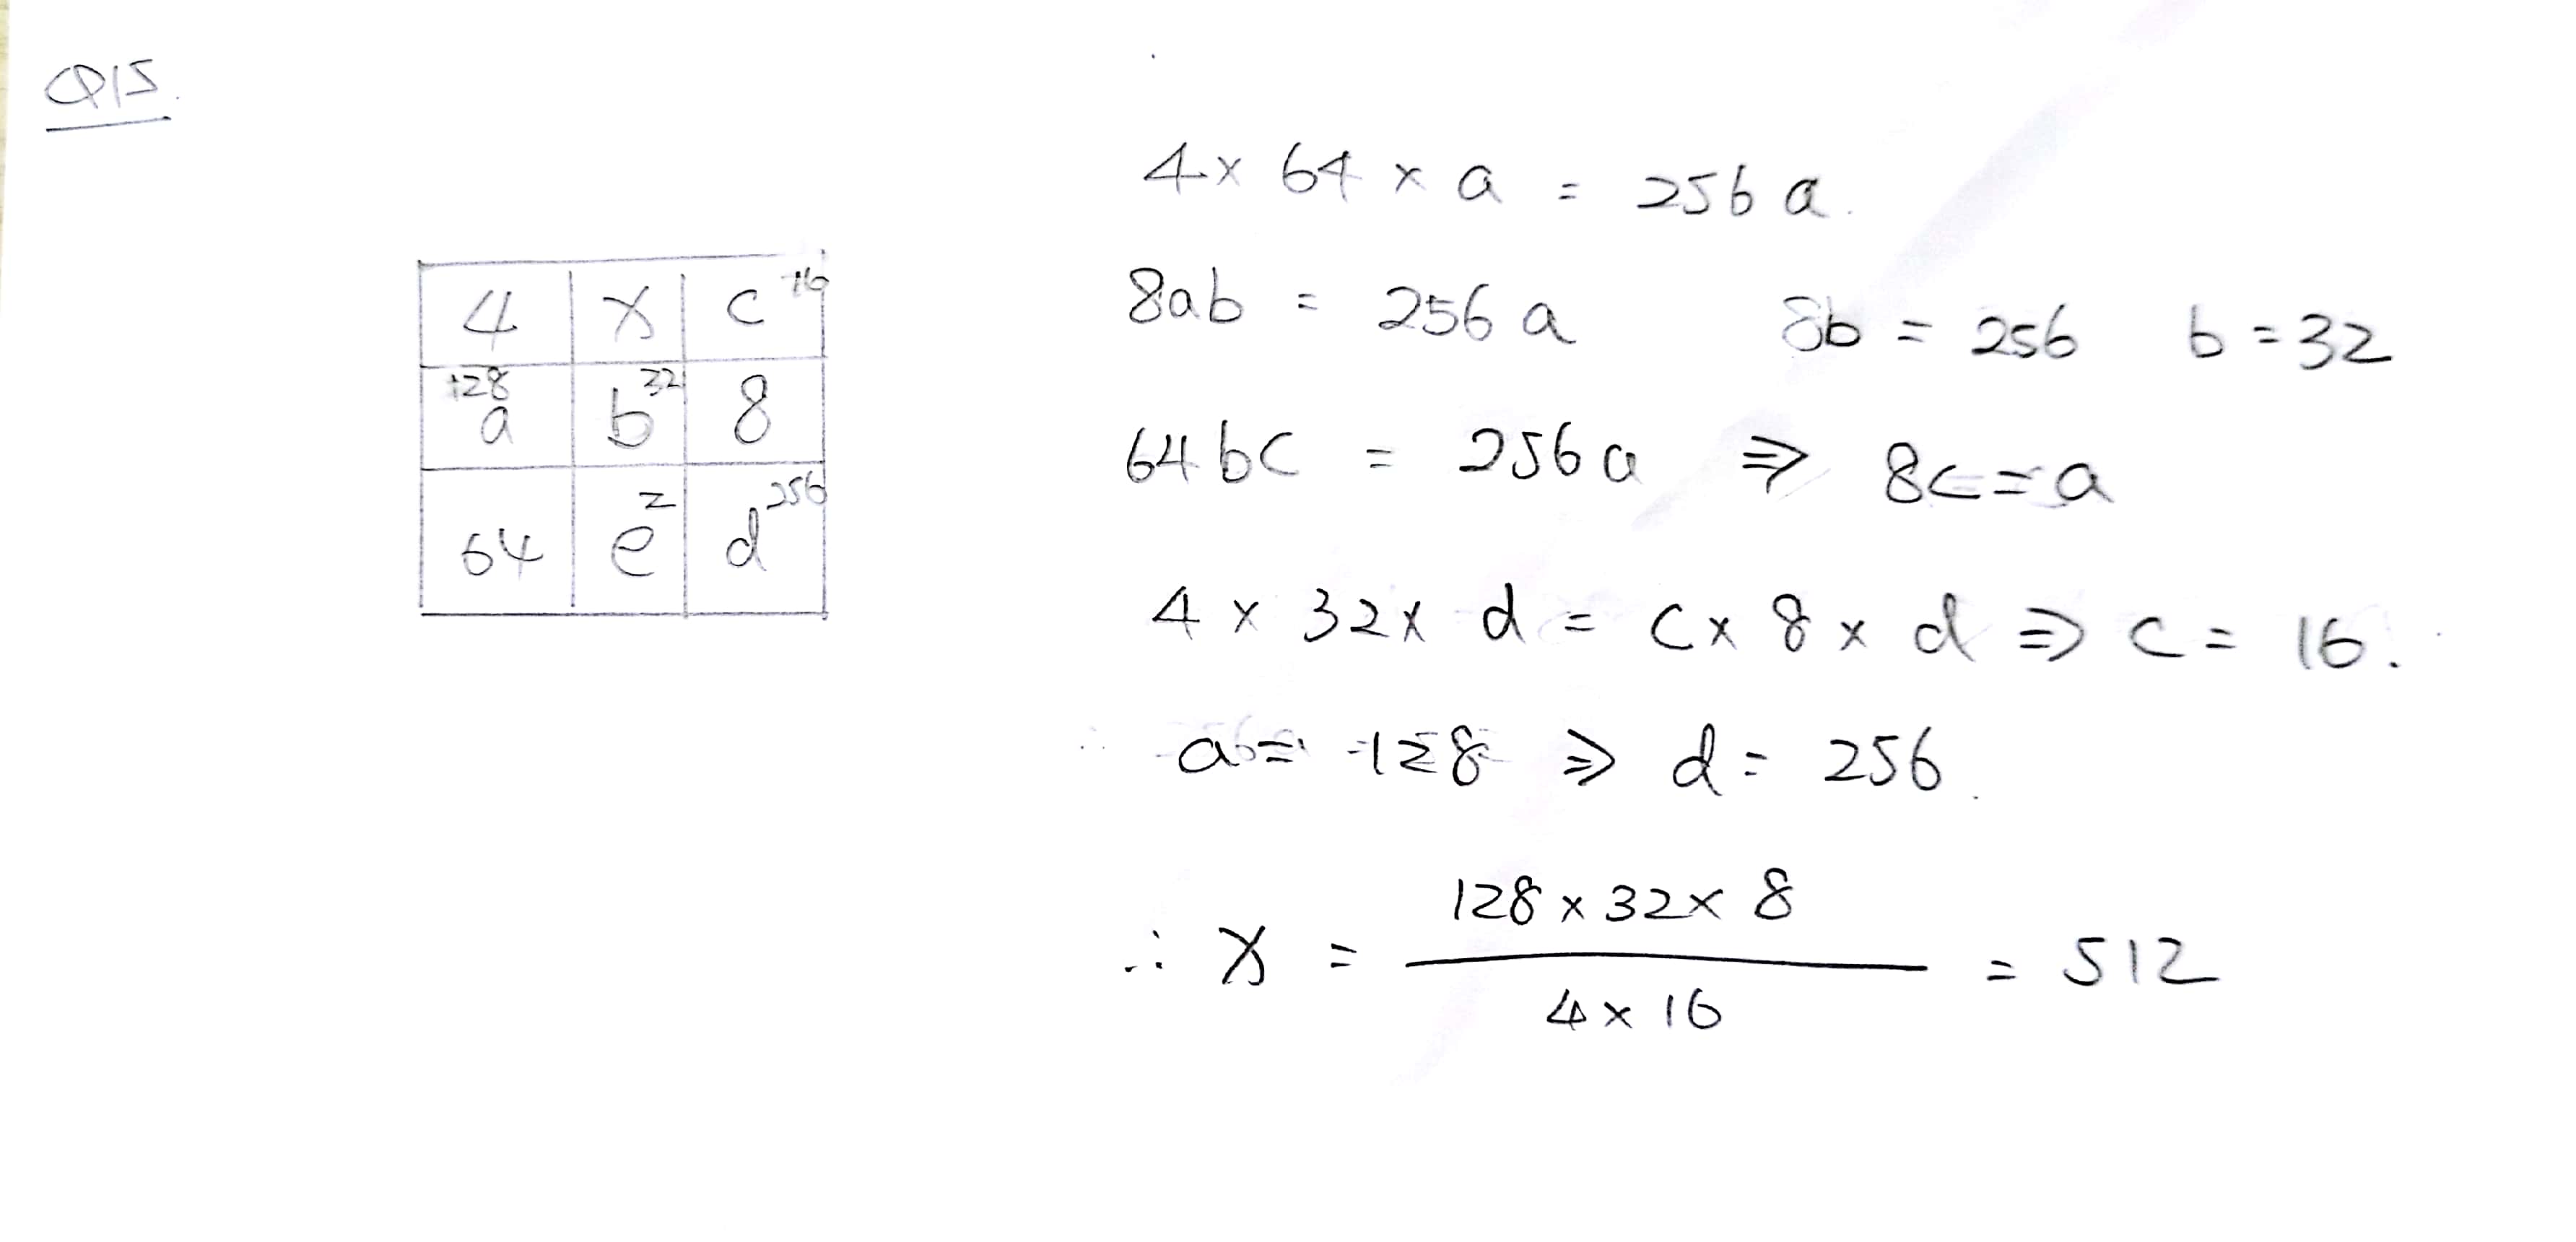 Q15.
4 x c 16
128 a b 32 8
64 e 2 d 256
4 × 64 × a = 256 a.
8ab = 256 a 8b = 256 b = 32
64bc = 256 a ⇒ 8c = a
4 × 32 × d = c × 8 × d ⇒ c = 16.
∴ a = 128 ⇒ d = 256.
∴ x = 128 × 32 × 8 / 4 × 16 = 512